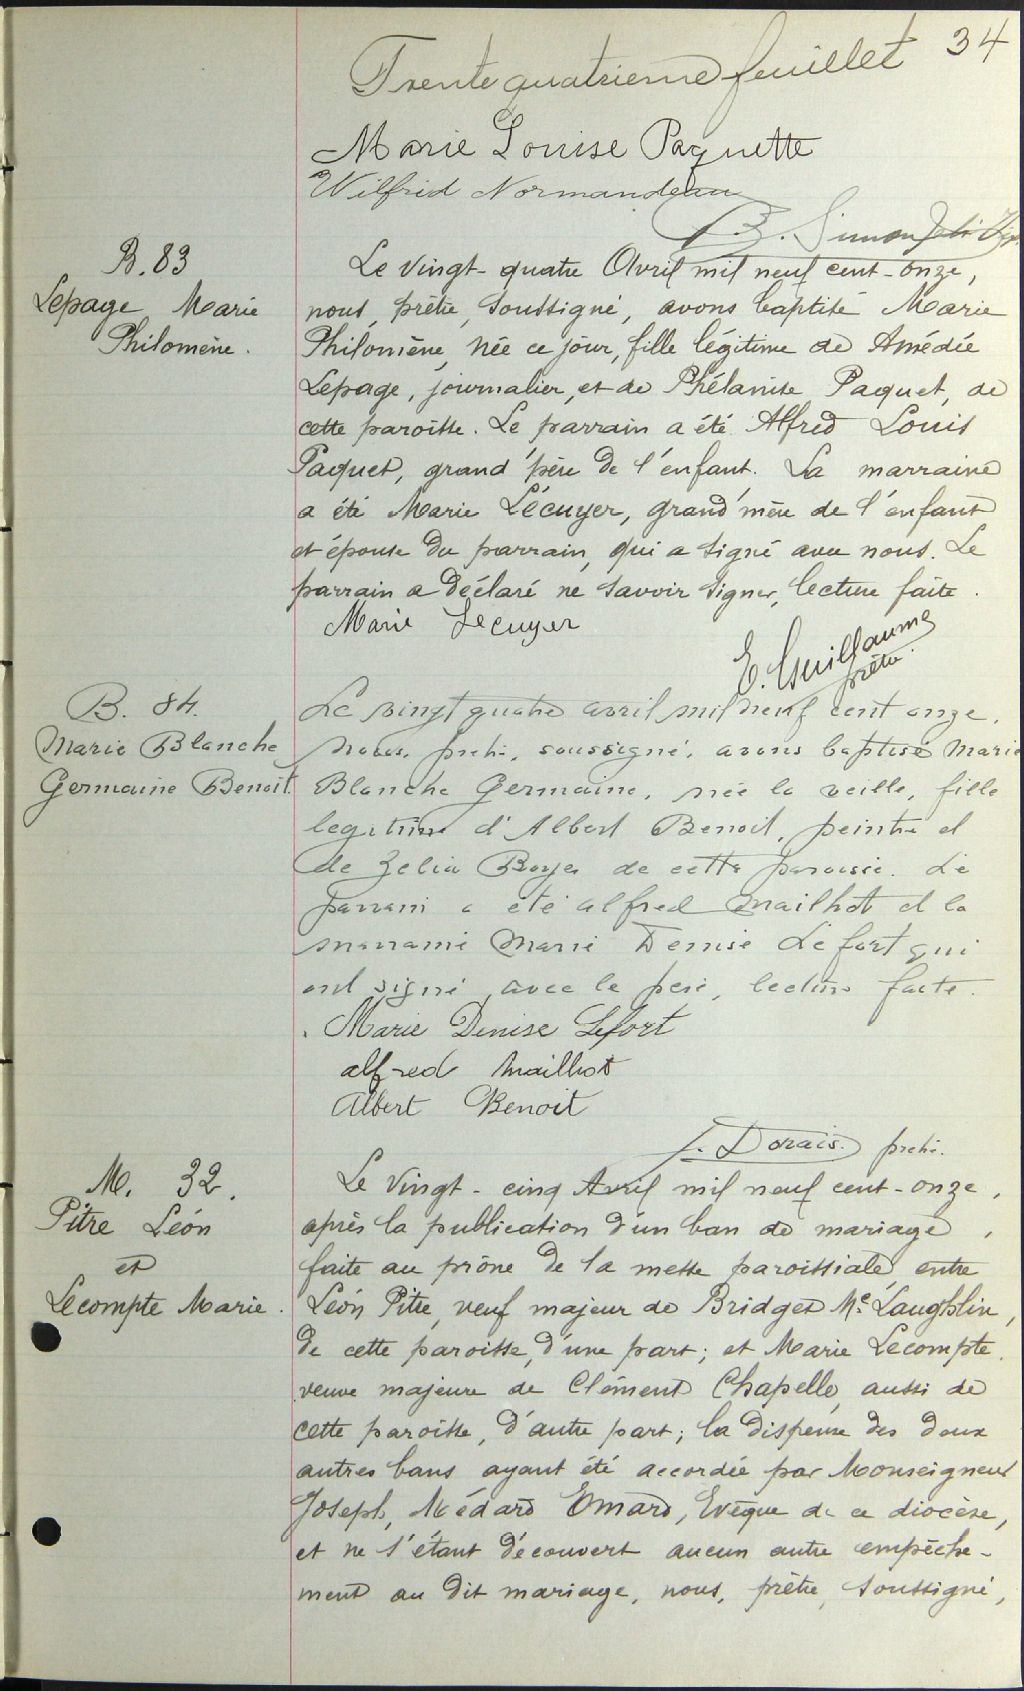 34
Trente quatrieme feuillet
Marie Louise Paquette
Wilfrid Normandeau
B. Simon
B. 83
Lepage Marie
Philomène.
Le vingt-quatre Avril mil neuf cent-onze,
nous, prêtre, soussigné, avons baptisé Marie
Philomène, née ce jour, fille légitime de Amédée
Lepage, journalier, et de Phélanise Paquet, de
cette paroisse. Le parrain a été Alfred Louis
Paquet, grand'père de l'enfant. La marraine
a été Marie Lécuyer, grand'mère de l'enfant
et épouse du parrain, qui a signé avec nous. Le
parrain a déclaré ne savoir signer, lecture faite.
Marie Lecuyer
E. Guillaume
prêtre.
B. 84.
Marie Blanche
Germaine Benoit
Le vingt quatre avril mil neuf cent onze,
nous, prêtre, soussigné, avons baptisé Marie
Blanche Germaine, née la veille, fille
legitime d'Albert Benoit, peintre et
de Zelia Boyer de cette paroisse. Le
parrain a été alfred Mailhot et la
marraine Marie Denise Lefort qui
ont signé avec le père, lecture faite.
Marie Denise Lefort
alfred Mailhot
Albert Benoit
J. Dorais. prêtre.
M. 32.
Pitre Léon
et
Lecompte Marie.
Le vingt-cinq Avril mil neuf cent-onze,
après la publication d'un ban de mariage,
faite au prône de la messe paroissiale, entre
Léon Pitre, veuf majeur de Bridget Mc Laughlin,
de cette paroisse, d'une part; et Marie Lecompte,
veuve majeure de Clément Chapelle, aussi de
cette paroisse, d'autre part; la dispense des deux
autres bans ayant été accordée par Monseigneur
Joseph, Médard Emard, Evêque de ce diocèse,
et ne s'étant découvert aucun autre empêche-
ment au dit mariage, nous, prêtre, soussigné,